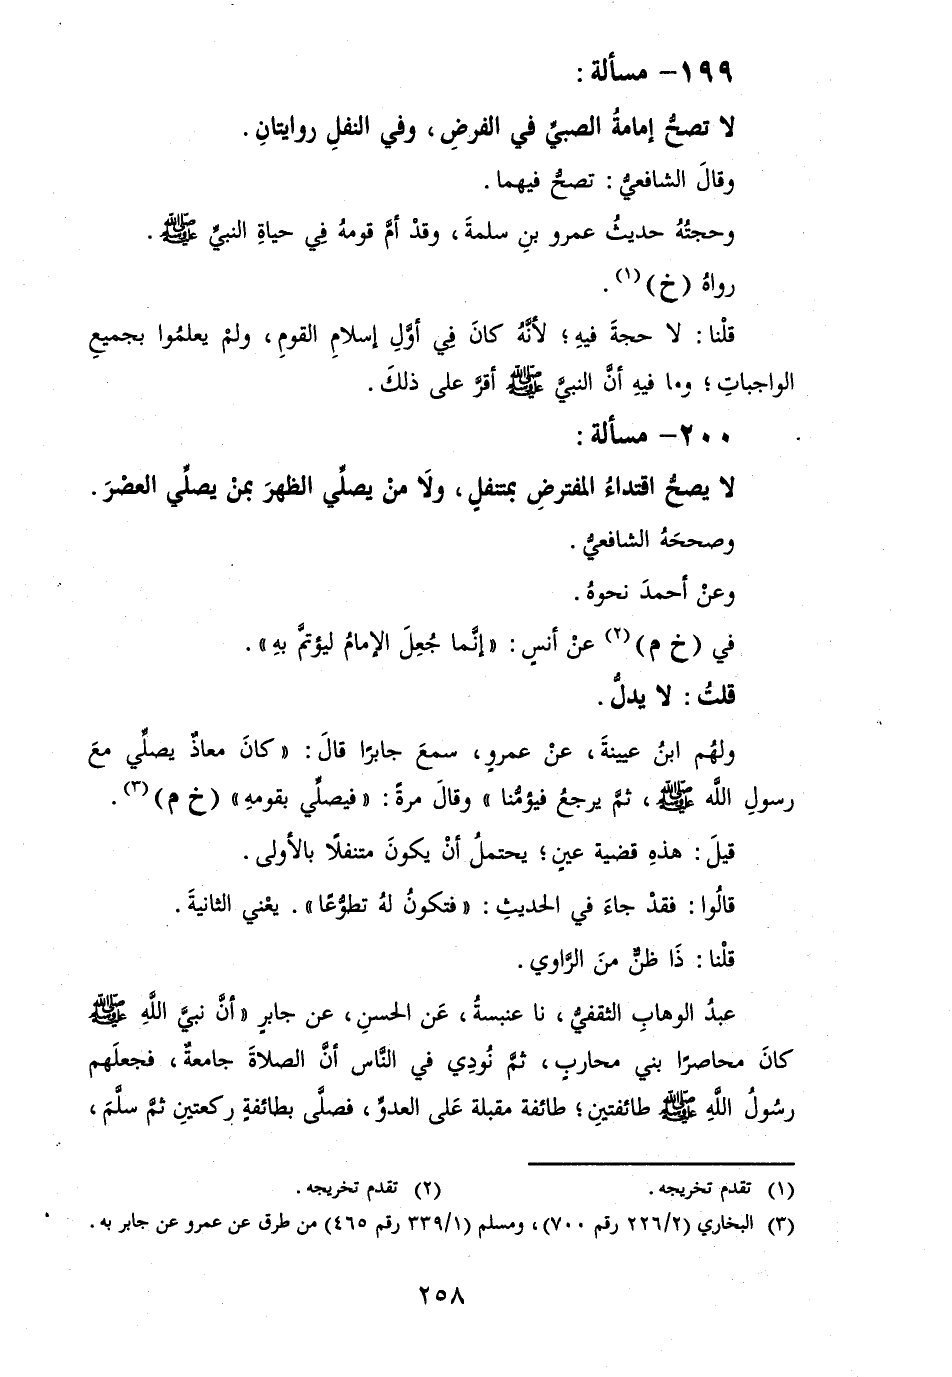 ١٩٩- مسألة :
لا تصحُّ إمامةُ الصبيِّ في الفرضِ ، وفي النفلِ روايتانِ .
وقالَ الشافعيُّ : تصحُّ فيهما .
وحجتُهُ حديثُ عمرو بنِ سلمةَ ، وقدْ أمَّ قومهُ فِي حياةِ النبيِّ ﷺ .
رواهُ (خ)(١) .
قلْنا : لا حجةَ فيهِ ؛ لأنَّهُ كانَ فِي أوَّلِ إسلامِ القومِ ، ولمْ يعلمُوا بجميعِ
الواجباتِ ؛ وما فيهِ أنَّ النبيَّ ﷺ أقرَّ على ذلكَ .
٢٠٠- مسألة :
لا يصحُّ اقتداءُ المفترضِ بمتنفلٍ ، ولَا منْ يصلِّي الظهرَ بمنْ يصلِّي العصْرَ .
وصححَهُ الشافعيُّ .
وعنْ أحمدَ نحوهُ .
في (خ م)(٢) عنْ أنسٍ : «إنَّما جُعِلَ الإمامُ ليؤتمَّ بهِ» .
قلتُ : لا يدلُّ .
ولهُم ابنُ عيينةَ ، عنْ عمروٍ ، سمعَ جابرًا قالَ : «كانَ معاذٌ يصلِّي معَ
رسولِ اللَّه ﷺ ، ثمَّ يرجعُ فيؤمُّنا» وقالَ مرةً : «فيصلِّي بقومهِ» (خ م)(٣) .
قيلَ : هذهِ قضية عينٍ ؛ يحتملُ أنْ يكونَ متنفلًا بالأولى .
قالُوا : فقدْ جاءَ في الحديثِ : «فتكونُ لهُ تطوُّعًا» . يعْني الثانيةَ .
قلْنا : ذَا ظنٌّ منَ الرَّاوي .
عبدُ الوهابِ الثقفيُّ ، نا عنبسةُ ، عَن الحسنِ ، عن جابرٍ «أنَّ نبيَّ اللَّهِ ﷺ
كانَ محاصرًا بني محاربٍ ، ثمَّ نُودِي في النَّاس أنَّ الصلاةَ جامعةٌ ، فجعلَهم
رسُولُ اللَّهِ ﷺ طائفتينِ ؛ طائفة مقبلة عَلى العدوِّ ، فصلَّى بطائفةٍ ركعتينِ ثمَّ سلَّمَ ،
(١) تقدم تخريجه . (٢) تقدم تخريجه .
(٣) البخاري (٢٢٦/٢ رقم ٧٠٠) ، ومسلم (٣٣٩/١ رقم ٤٦٥) من طرق عن عمرو عن جابر به .
٢٥٨